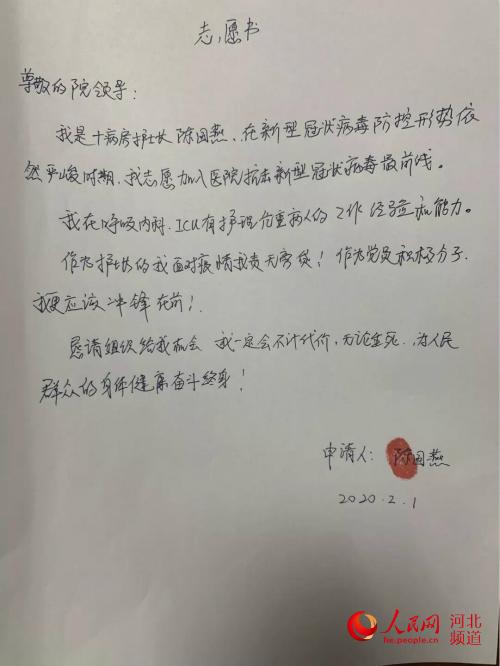 志愿书
尊敬的院领导：
我是十病房护士长陈国燕、在新型冠状病毒防控形势依
然严峻时期、我志愿加入医院抗击新型冠状病毒最前线。
我在呼吸内科、ICU有护理危重病人的工作经验和能力。
作为护士长的我面对疫情我责无旁贷！作为党员积极分子
我更应该冲锋在前！
恳请组织给我机会 我一定会不计代价，无论生死、为人民
群众的身体健康奋斗终身！
申请人：陈国燕
2020.2.1
人民网 河北
he.people.cn 频道